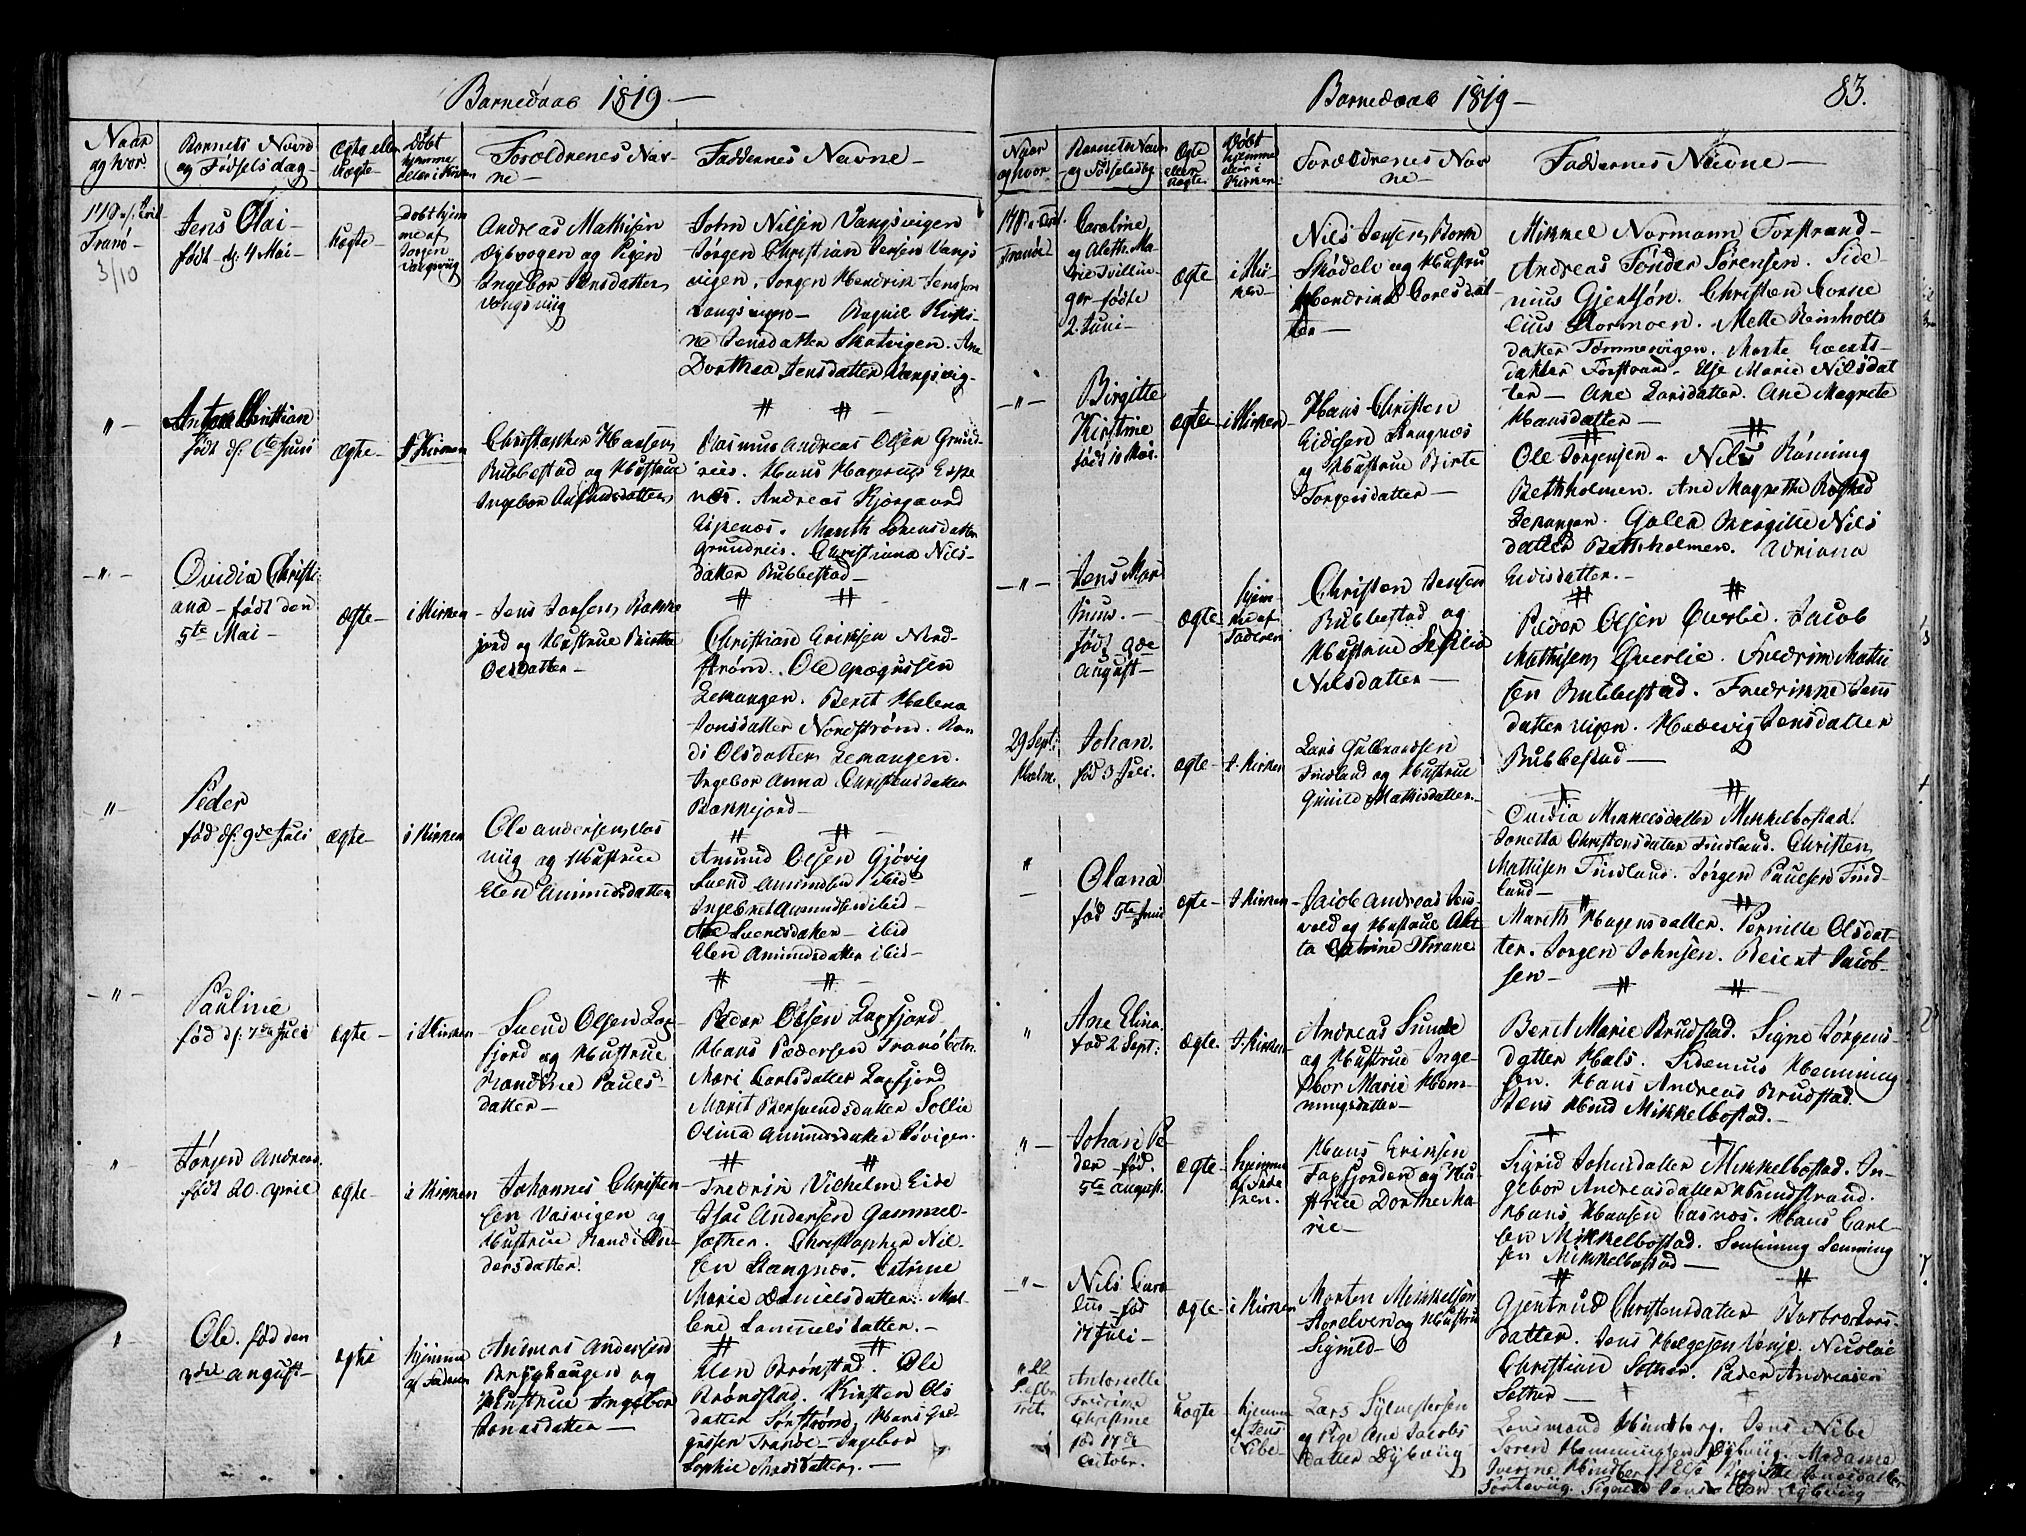 Barnedaab 1819 —
Naar og hvor.
Barnets Navn og Fødselsdag —
Ægte eller Uægte —
Døbt hjemme eller i Kirken
Forældrenes Navne —
Faddernes Navne —
Tranø —
3/10
Jens Olai
født d: 4 Mai —
Uægte —
Døbt hjemme af Jørgen Vangsviig
Andreas Mathisen
og Pigen
Ingebor Jensdatter
Vangsviig
John Nilsen Vangsvigen
Jørgen Christian Jensen Vangsvigen. Jørgen Hendrik Jensen
Vangsvigen — Ragnil Kirstine Jensdatter Skatvigen. Ane
Dorthea Jensdatter Vangsvig —
" —
Anton Christian
født d: 6te Juni
ægte —
i Kirken
Christopher Hansen
Rubbestad og Hustrue
Ingebor Asmundsdatter
Rasmus Andreas Olsen Grundreis. Hans Espenæs. Andreas Kjergaard
Espenæs. Marith Sørensdatter
Grundreis. Christiana Nilsdatter Rubbestad —
— " —
Ovidia Christiana — født den
5te Mai —
ægte —
i Kirken
Jens Jonsen Bakkejord og Hustrue Birthe
Olsdatter —
Christian Eriksen Nordstrøm. Ole Magnussen
Lemangen. Berit Helena
Jonsdatter Nordstrøm. Randi Olsdatter Lemangen.
Ingebor Anna Christensdatter
Bakkejord —
"
Peder
fød d: 9de Juli
ægte —
i Kirken
Ole Andersen
og Hustrue
Elen Amundsdatter
Amund Olsen Gjøvig
Svend Amundsen ibid —
Ingebret Amundsen ibid —
Ane Svendsdatter — ibid
Elen Amundsdatter ibid —
— " —
Pauline
fød d: 7de Juli
ægte —
i Kirken
Svend Olsen Laxfjord og Hustrue
Paulsdatter —
Peder Olsen Laxfjord
Hans Pedersen Tranøbotn.
Mari Carlsdatter Laxfjord
Marit Bersvendsdatter Sollie
Olina Amundsdatter
"
Jørgen Andreas.
født 20. April
ægte —
i Kirken
Johannes Christensen Vasvigen og
Hustrue Randi Andersdatter.
Fredrik Vilhelm Eide
Isac Andersen Gammelsæther. Christopher Nilsen Stangnæs. Catrine
Marie Danielsdatter. Malene Samuelsdatter. —
Ole. fød den
august —
ægte
hjemme af Faderen
Andreas Andersen
Bryghaugen og
Hustrue Ingebor
Jonasdatter —
Elen Brønstad. Ole
Brøndstad. Kirsten Olsdatter Sørstrøm, Hans
Tranøe — Ingebor
Sophie Madsdatter. —
Barnedaab 1819 —
83.
Naar og hvor
Barnets Navn og Fødselsdag
Ægte eller Uægte
Døbt hjemme eller i Kirken
Forældrenes Navne —
Faddernes Navne —
Tranøe
Caroline
og Aleth Marie Tvillinger — fødte
2 Juni —
ægte
i Kirken —
Nils Jensen
og Hustru
Hendrikke Carlsdatter —
Mikkel Normann Forstrand —
Andreas Tønder Sørensen. Sidenius Gjertsøn. Christen Cornelius Mormoen. Mette Reinholtsdatter Tømmervigen. Marte
datter Forstrand. Else Marie Nilsdatter — Ane Larsdatter. Ane Magrete
Hansdatter —
— " —
Birgitte
Kirstine
født 10 Mai.
ægte —
i Kirken —
Hans Christen
Eidisen Stangnæs
og Hustrue Birte
Torgersdatter —
Ole Jørgensen. Nils Rønning
Bethholmen. Ane Magrethe
Lemangen. Golla Birgitte Nilsdatter Bethholmen. Adriana
Eidisdatter. —
— " —
Jens Martinus. —
født 9de
August —
ægte —
hjemme af Faderen
Christen Jensen
Rubbestad og
Hustrue
Nilsdatter —
Peder Olsen Øverlie. Jacob
Mathisen Øverlie. Fredrik Mathisen Rubbestad. Fredrikke Jensdatter. Hedevig Jensdatter
Rubbestad —
29 Sept:
Johan.
fød 3 Juli.
ægte —
i Kirken
Lars
Finland og Hustrue
Gunild Mathisdatter —
Ovidia Mikkelsdatter Mikkelbostad.
Jonetta Christensdatter Finland. Christen
Mathisen Finland. Jørgen Paulsen Finland —
"
Olana
fød 5te Juni
ægte —
i Kirken —
Jacob Andreas
og Hustrue
Catrine
Marith Hagensdatter. Pernille Olsdatter. Jørgen Johnsen. Beient Jacobsen —
"
Ane Elina.
fød 2 Sept:
ægte.
i Kirken —
Andreas
og Hustrue Ingebor Marie Hemmingsdatter —
Berit Marie Brudstad. Signe Jørgensdatter Hals. Sidenius Hemmingsen. Hans Andreas Brudstad.
Jens Hind Mikkelbostad. —
" —
Johan Peder — fød.
5te August.
ægte —
hjemme
Hans Eriksen
Faxfjorden og Hustrue Dorthe Marie —
Sigrid Johnsdatter Mikkelbostad. Ingebor Andreasdatter Hundstrand.
Hans Hansen Casnæs. Hans Carlsen Mikkelbostad.
Mikkelbostad —
" —
Nils — fød
17 Juli —
ægte
i Kirken
Morten Mikkelsøn
og Hustrue
Sigrild —
Gjertrud Christensdatter. Barbro Larsdatter. Jens Helgesen. Nicolai
Christian Sether. Peder Andreasen
Sether —
Antonette
Fredrikke
Christine
fød 17de
Octobr.
Uægte
hjemme af Jens Nibe
Lars Sylvestersen
og Pige Ane Jacobsdatter Dybviig
Lensmand Hindberg. Jens Nibe
Søren Hemmingsen Dybviig. Madame